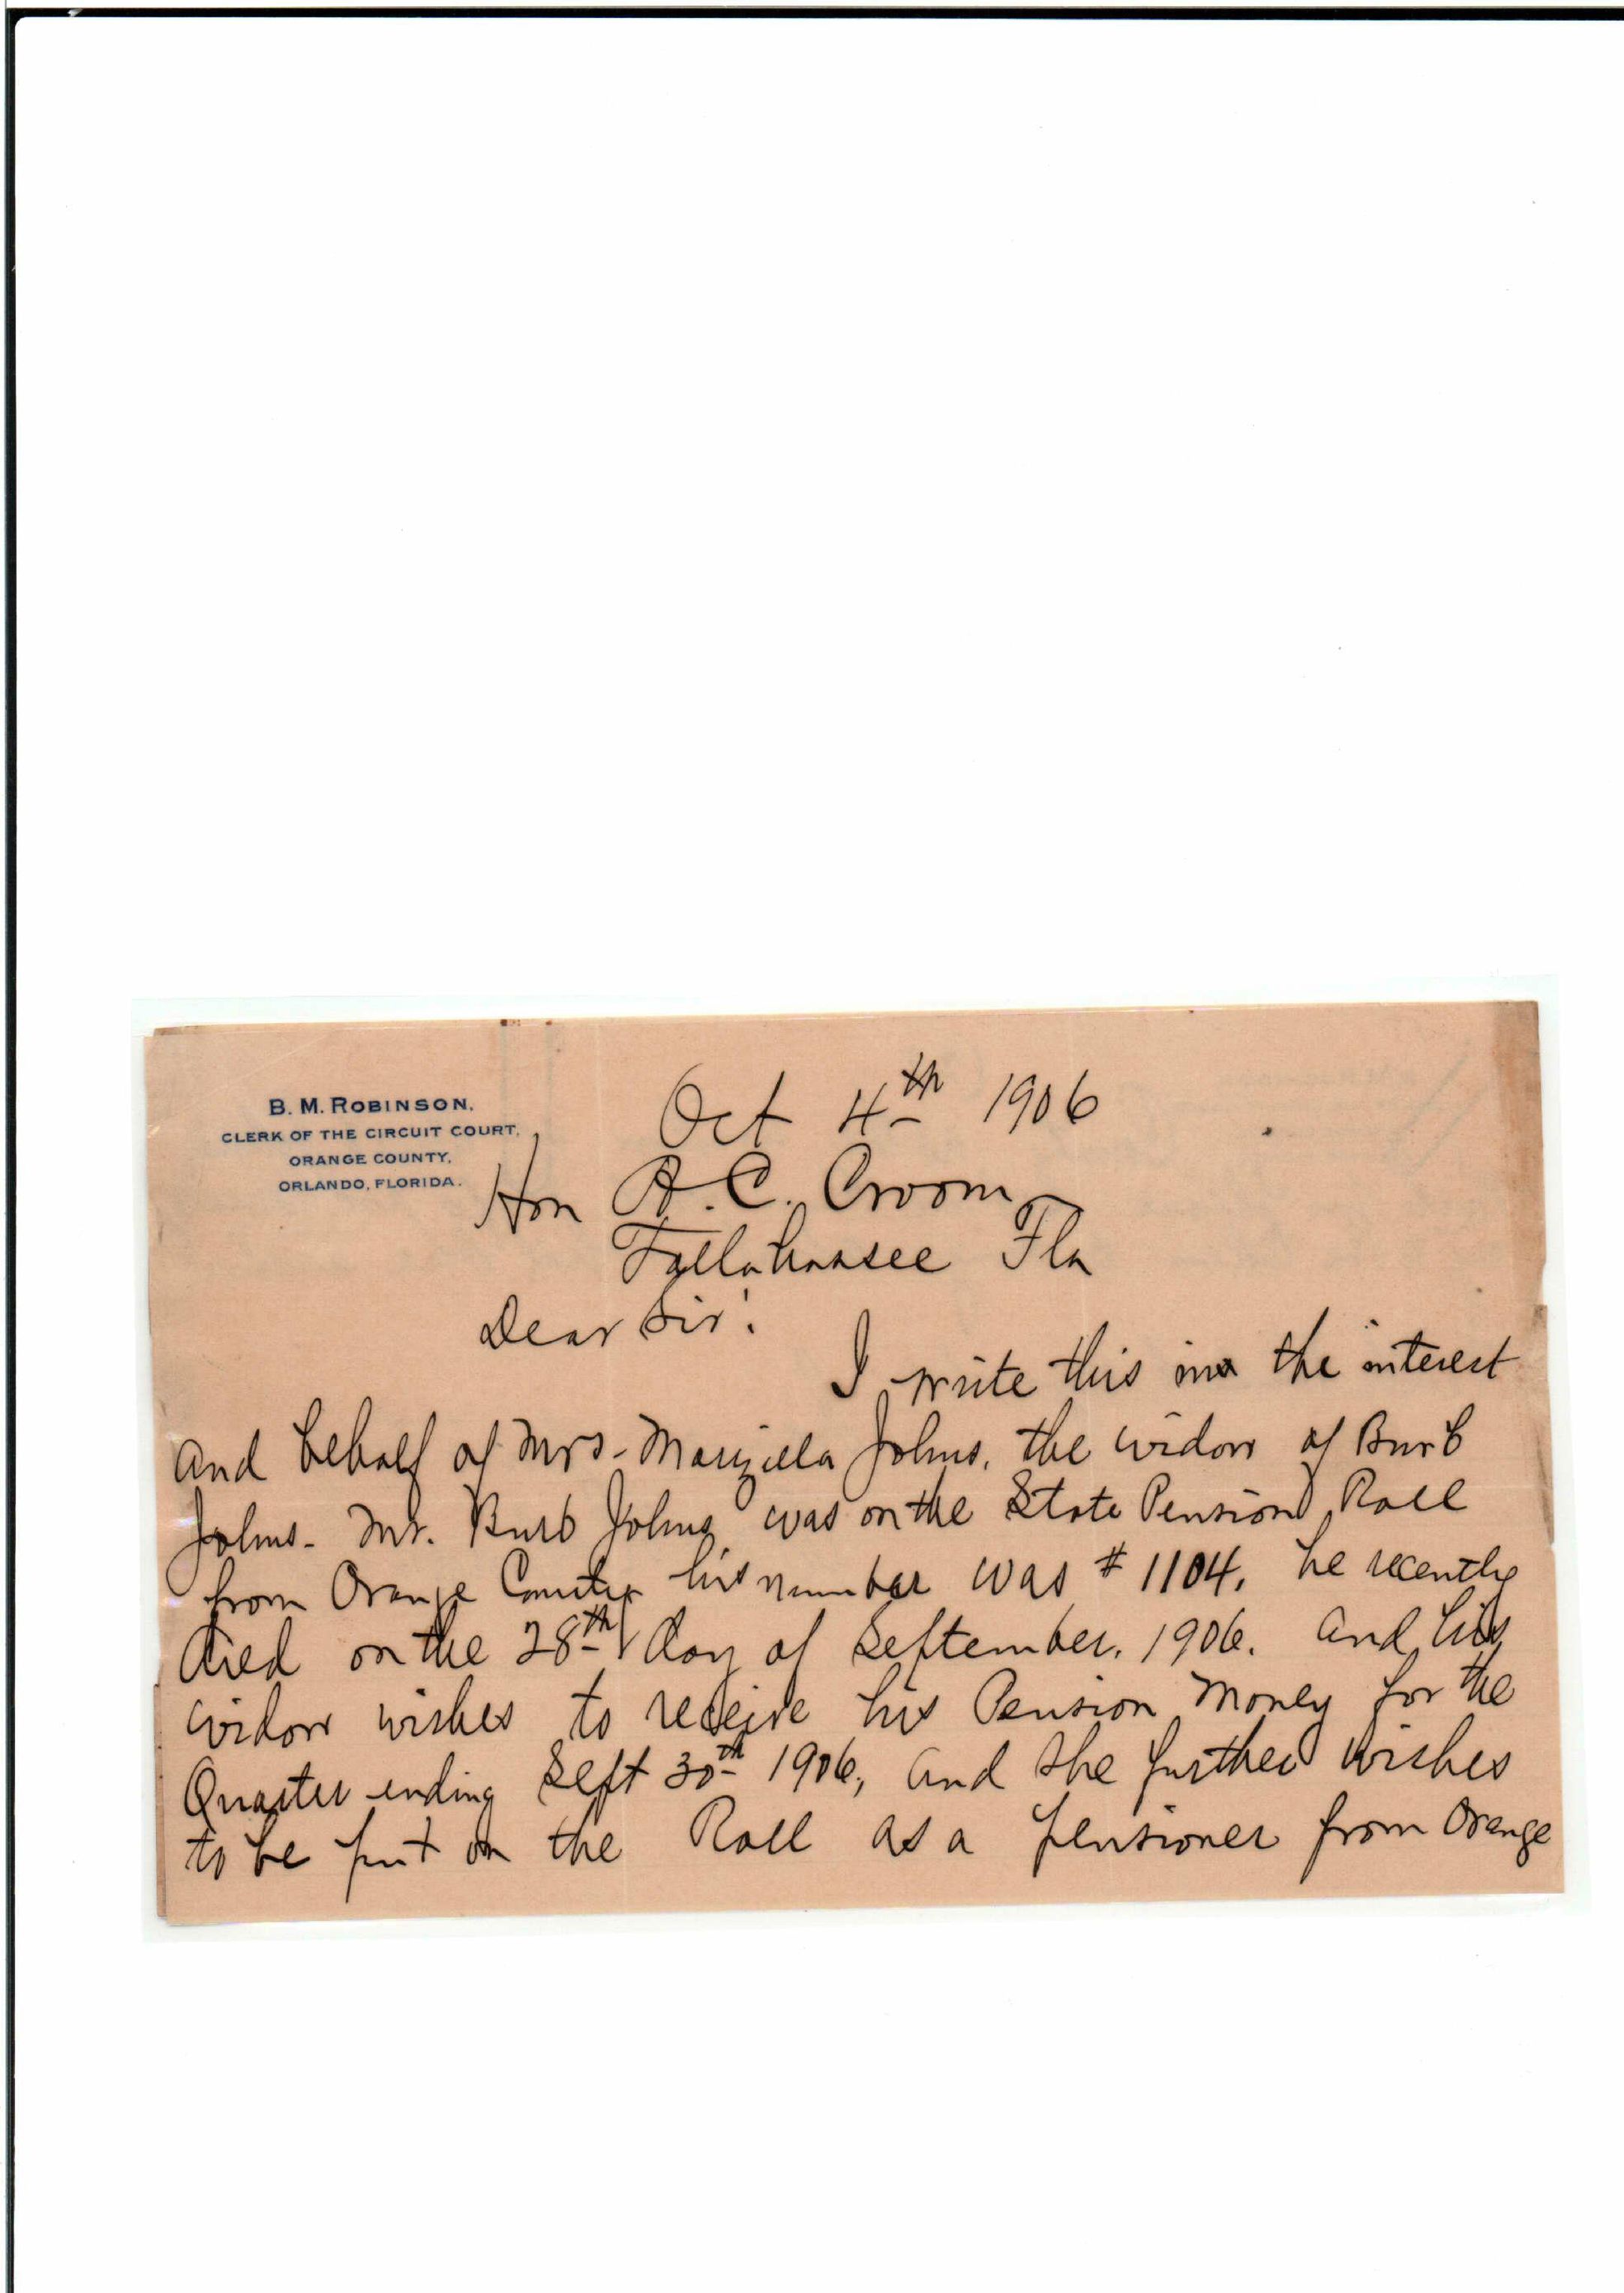 B. M. ROBINSON,
CLERK OF THE CIRCUIT COURT,
ORANGE COUNTY,
ORLANDO, FLORIDA.
Oct 4th 1906
Hon A. C. Croom
Tallahassee Fla
Dear Sir:
I write this in the interest
and behalf of Mrs. Marizilla Johns, the widow of Burb
Johns. Mr. Burb Johns was on the State Pension Roll
from Orange County his number was # 1104, he recently
died on the 28th day of September, 1906. and his
widow wishes to receive his Pension Money for the
Quarter ending Sept 30th 1906, and she further wishes
to be put on the Roll as a pensioner from Orange